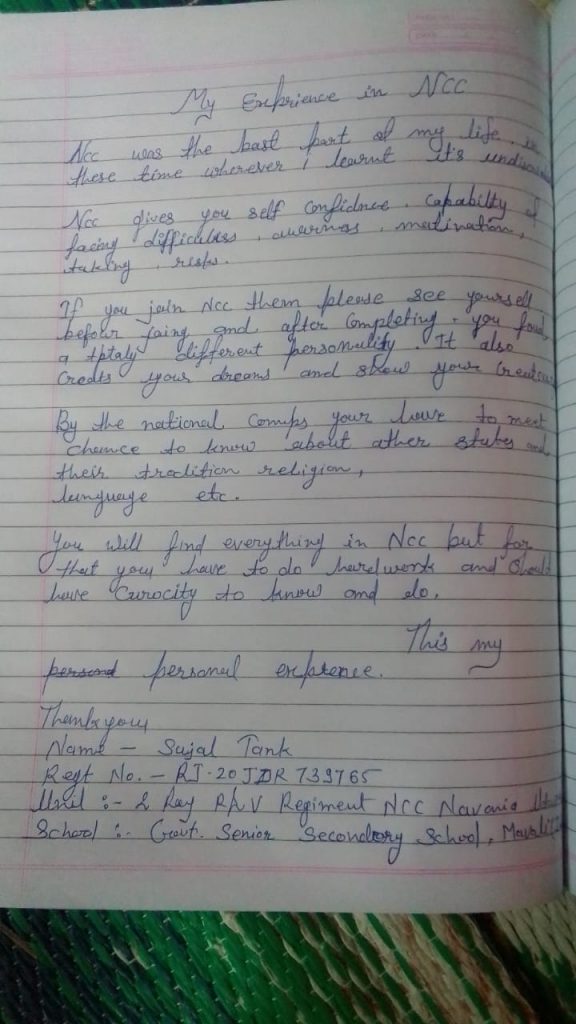 My Exprience in NCC
Ncc was the bast part of my life, in
these time wherever i learnt it's
Ncc gives you self confidnce, capabilty of
facing difficultes, awarness, motivation,
taking risks.
If you join Ncc them please see yourself
befour joing and after completing. you found
a tptaly different personality. It also
Credts your dreams and show your
By the national camps your have to meet
chance to know about ather states and
their tradition religion,
language etc.
You will find everything in Ncc but for
that you have to do hardwork and should
have Curocity to know and do.
This my
personal exprience.
Thankyou
Name - Sujal Tank
Regt No. - RJ-20JDR 739765
Unit :- 2 Raj R&V Regiment NCC Navania
School :- Govt. Senior Secondory School,